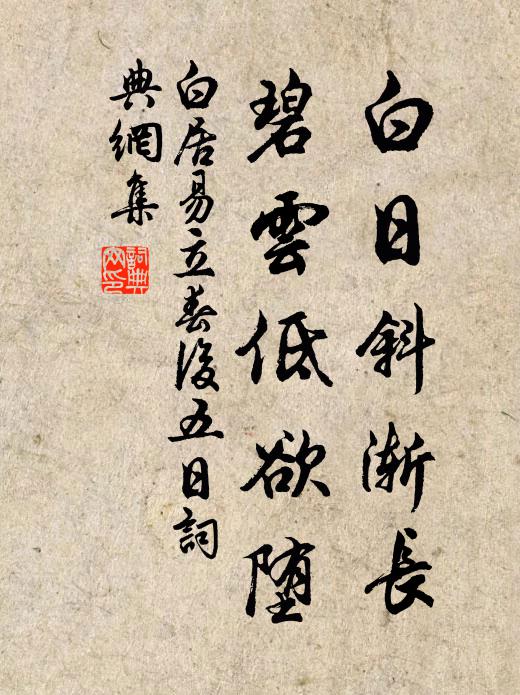 白日斜漸長
碧雲低欲墮
白居易立春後五日詞
典網集
詞典
网印